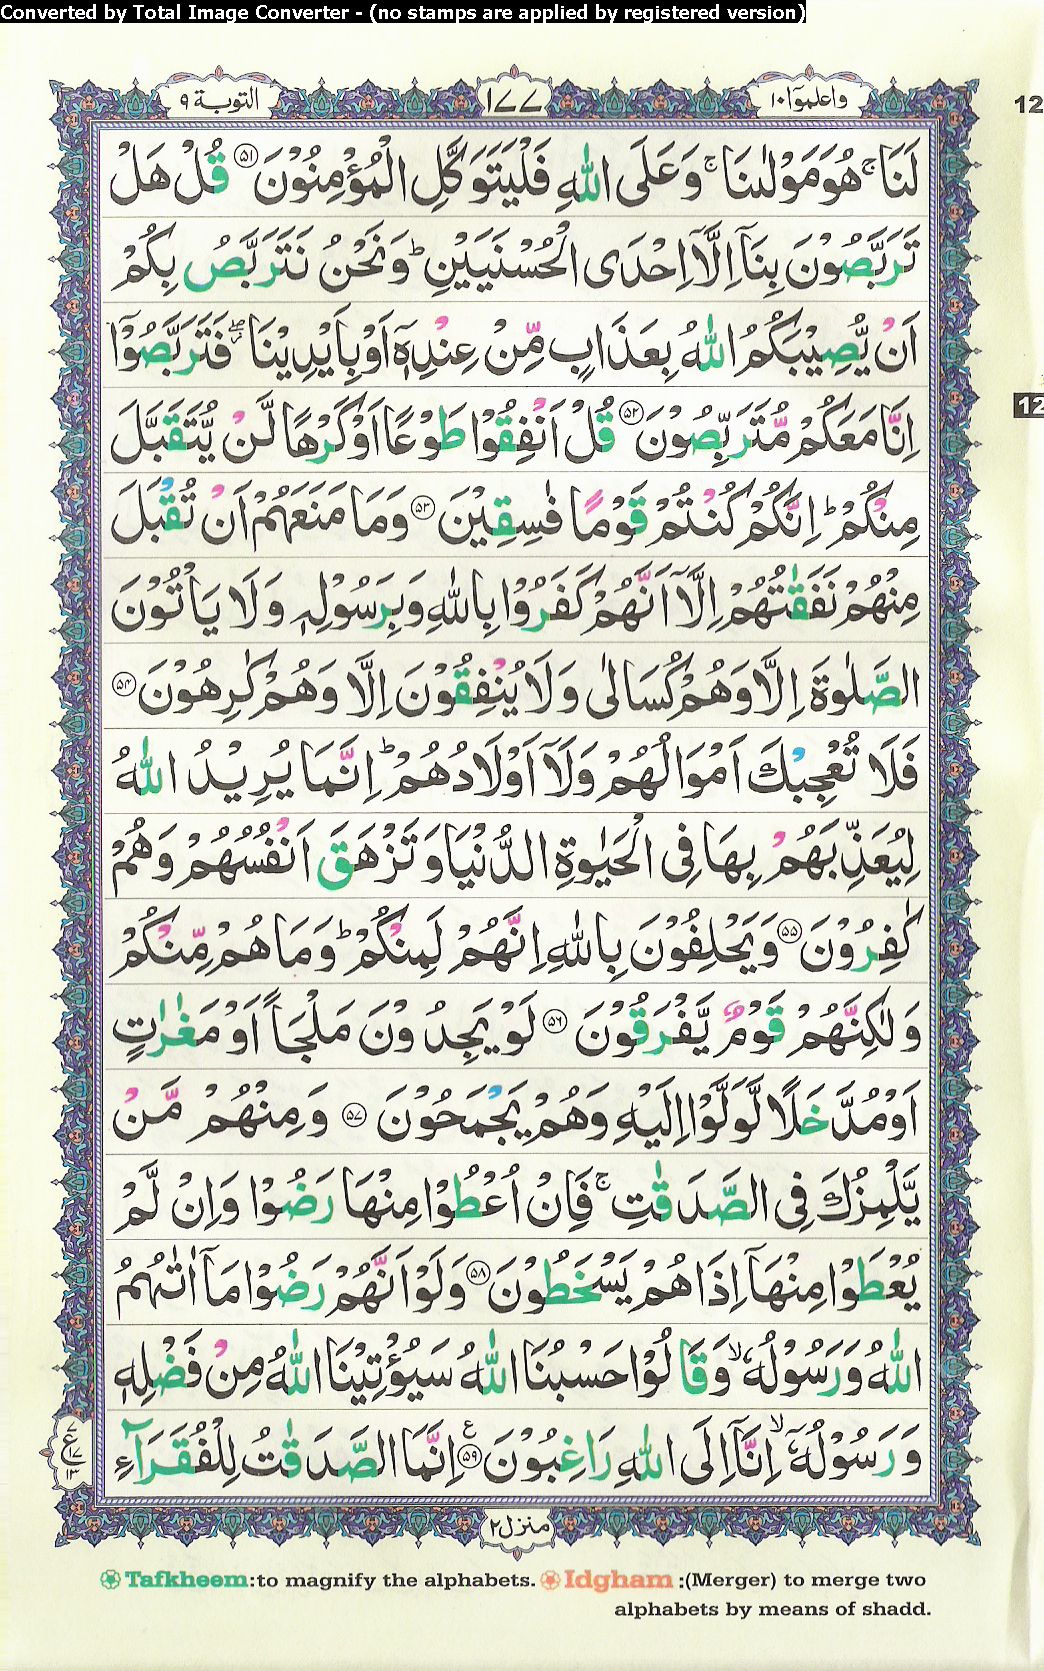 Converted by Total Image Converter - (no stamps are applied by registered version)
واعلموا۱۰ ۱۷۷ التوبة ۹
12
لَنَا ۚ هُوَ مَوْلٰىنَا ۚ وَعَلَى اللّٰهِ فَلْيَتَوَكَّلِ الْمُؤْمِنُوْنَ ۝۵۱ قُلْ هَلْ
تَرَبَّصُوْنَ بِنَاۤ اِلَّاۤ اِحْدَى الْحُسْنَيَيْنِ ؕ وَنَحْنُ نَتَرَبَّصُ بِكُمْ
اَنْ يُّصِيْبَكُمُ اللّٰهُ بِعَذَابٍ مِّنْ عِنْدِهٖۤ اَوْ بِاَيْدِيْنَا ۖؗ فَتَرَبَّصُوْۤا
12
اِنَّا مَعَكُمْ مُّتَرَبِّصُوْنَ ۝۵۲ قُلْ اَنْفِقُوْا طَوْعًا اَوْ كَرْهًا لَّنْ يُّتَقَبَّلَ
مِنْكُمْ ؕ اِنَّكُمْ كُنْتُمْ قَوْمًا فٰسِقِيْنَ ۝۵۳ وَمَا مَنَعَهُمْ اَنْ تُقْبَلَ
مِنْهُمْ نَفَقٰتُهُمْ اِلَّاۤ اَنَّهُمْ كَفَرُوْا بِاللّٰهِ وَبِرَسُوْلِهٖ وَلَا يَاْتُوْنَ
الصَّلٰوةَ اِلَّا وَهُمْ كُسَالٰى وَلَا يُنْفِقُوْنَ اِلَّا وَهُمْ كٰرِهُوْنَ ۝۵۴
فَلَا تُعْجِبْكَ اَمْوَالُهُمْ وَلَاۤ اَوْلَادُهُمْ ؕ اِنَّمَا يُرِيْدُ اللّٰهُ
لِيُعَذِّبَهُمْ بِهَا فِى الْحَيٰوةِ الدُّنْيَا وَتَزْهَقَ اَنْفُسُهُمْ وَهُمْ
كٰفِرُوْنَ ۝۵۵ وَيَحْلِفُوْنَ بِاللّٰهِ اِنَّهُمْ لَمِنْكُمْ ؕ وَمَا هُمْ مِّنْكُمْ
وَلٰكِنَّهُمْ قَوْمٌ يَّفْرَقُوْنَ ۝۵۶ لَوْ يَجِدُوْنَ مَلْجَاً اَوْ مَغٰرٰتٍ
اَوْ مُدَّخَلًا لَّوَلَّوْا اِلَيْهِ وَهُمْ يَجْمَحُوْنَ ۝۵۷ وَمِنْهُمْ مَّنْ
يَّلْمِزُكَ فِى الصَّدَقٰتِ ۚ فَاِنْ اُعْطُوْا مِنْهَا رَضُوْا وَاِنْ لَّمْ
يُعْطَوْا مِنْهَاۤ اِذَا هُمْ يَسْخَطُوْنَ ۝۵۸ وَلَوْ اَنَّهُمْ رَضُوْا مَاۤ اٰتٰىهُمُ
اللّٰهُ وَرَسُوْلُهٗ ۙ وَقَالُوْا حَسْبُنَا اللّٰهُ سَيُؤْتِيْنَا اللّٰهُ مِنْ فَضْلِهٖ
وَرَسُوْلُهٗۤ ۙ اِنَّاۤ اِلَى اللّٰهِ رَاغِبُوْنَ ۝۵۹ اِنَّمَا الصَّدَقٰتُ لِلْفُقَرَآءِ
۷
ع
۱۷
۱۳
منزل۲
Tafkheem:to magnify the alphabets. Idgham :(Merger) to merge two
alphabets by means of shadd.